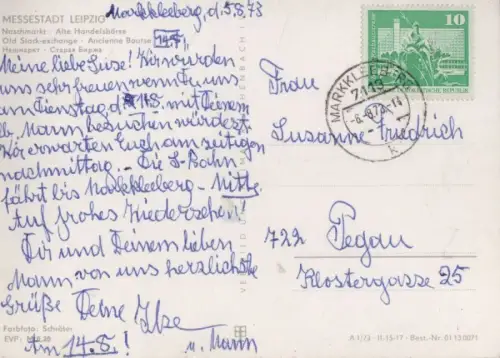 MESSESTADT LEIPZIG
Naschmarkt · Alte Handelsbörse
Old Stock-exchange · Ancienne Bourse
Нашмаркт · Старая Биржа
Markkleeberg, d. 5.8.73
14.8.
Meine liebe Suise! Wir würden
uns sehr freuen wenn Du uns
am Dienstag d. 18. mit Deinem
lb. Mann besuchen würdest.
Wir erwarten Euch am zeitigen
nachmittag. – Die S-Bahn
fährt bis Markkleeberg-Mitte.
Auf frohes Wiedersehen!
Dir und Deinem lieben
Mann von uns herzlichste
Grüße Deine Ilse
u. Mann
Am 14.8.!
Farbfoto: Schröter
EVP: M 0,20
10
MARKKLEEBERG
7113
Frau
Susanne Friedrich
722 Pegau
Klostergasse 25
A 1/73 · II-15-17 · Best.-Nr. 01 13 0071